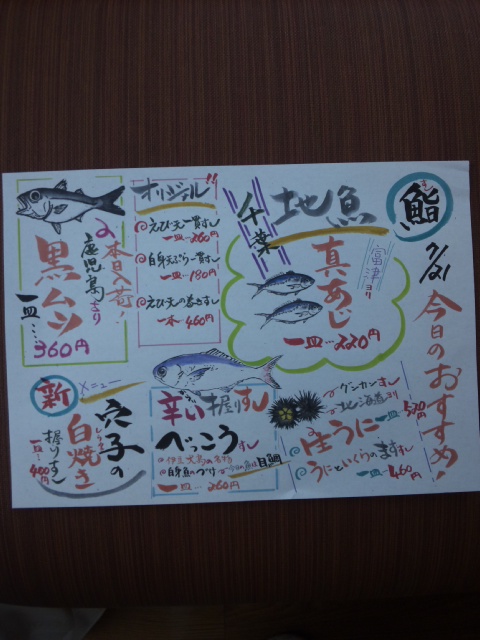 鮨
7/21
今日のおすすめ!
千葉
地魚
富津ヨリ
真あじ
一皿…220円
オリジナル!!
えび天一貫すし
一皿…260円
白身天ぷら一貫すし
一皿…180円
えび天の巻きずし
一本…460円
本日入荷!
鹿児島より
黒ムツ
一皿…360円
グンカンすし
北海道ヨリ
生うに
一皿…520円
うにといくらのますすし
一皿…460円
辛い握りすし
べっこうすし
伊豆大島の名物
白身魚のづけ
目鯛
一皿…260円
新メニュー
穴子の
白焼き
握りすし
一皿…400円